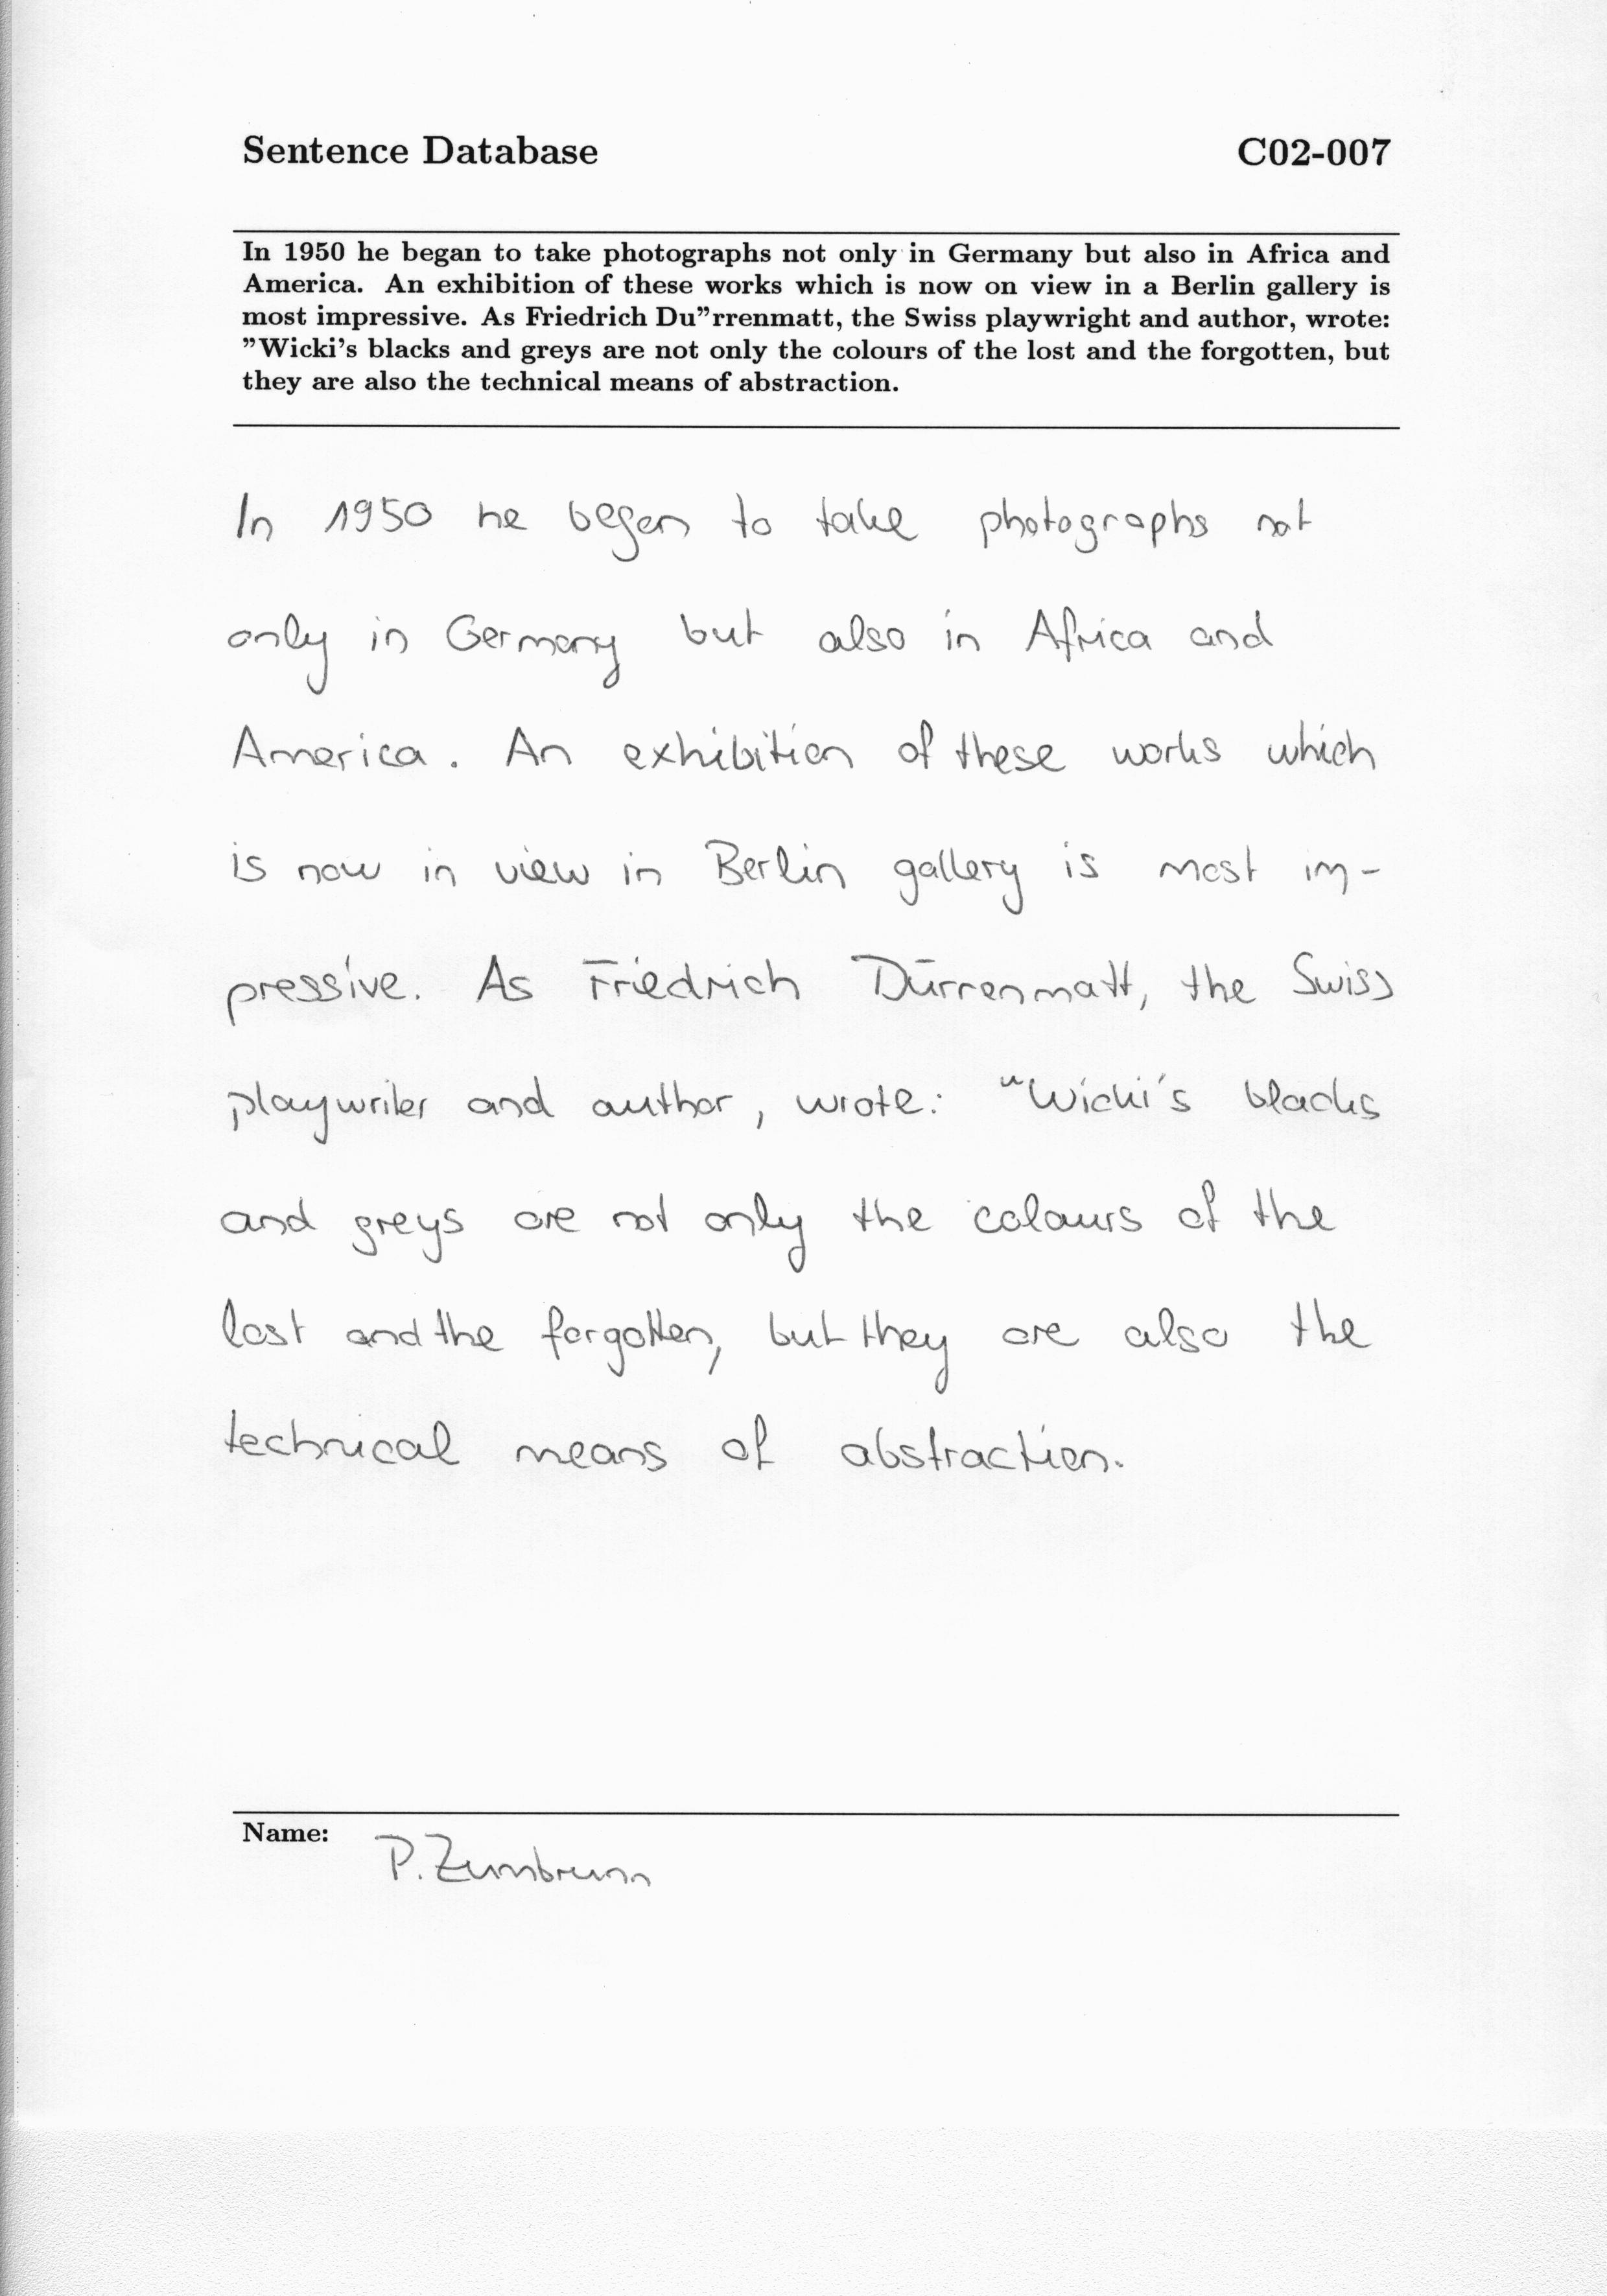 Sentence Database C02-007
In 1950 he began to take photographs not only in Germany but also in Africa and
America. An exhibition of these works which is now on view in a Berlin gallery is
most impressive. As Friedrich Du"rrenmatt, the Swiss playwright and author, wrote:
"Wicki's blacks and greys are not only the colours of the lost and the forgotten, but
they are also the technical means of abstraction.
In 1950 he began to take photographs not
only in Germany but also in Africa and
America. An exhibition of these works which
is now in view in Berlin gallery is most im-
pressive. As Friedrich Dürrenmatt, the Swiss
playwriter and author, wrote: "Wicki's blacks
and greys are not only the colours of the
lost and the forgotten, but they are also the
technical means of abstraction.
Name: P. Zumbrunn